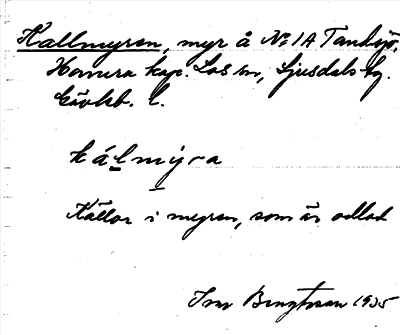 Kallmyren, myr å No 1A Tandsjö,
Hamra kap. Los sn, Ljusdals tg.
Gävleb. l.
kálmýra
Källor i myren, som är odlad
Ivar Bengtsson 1935